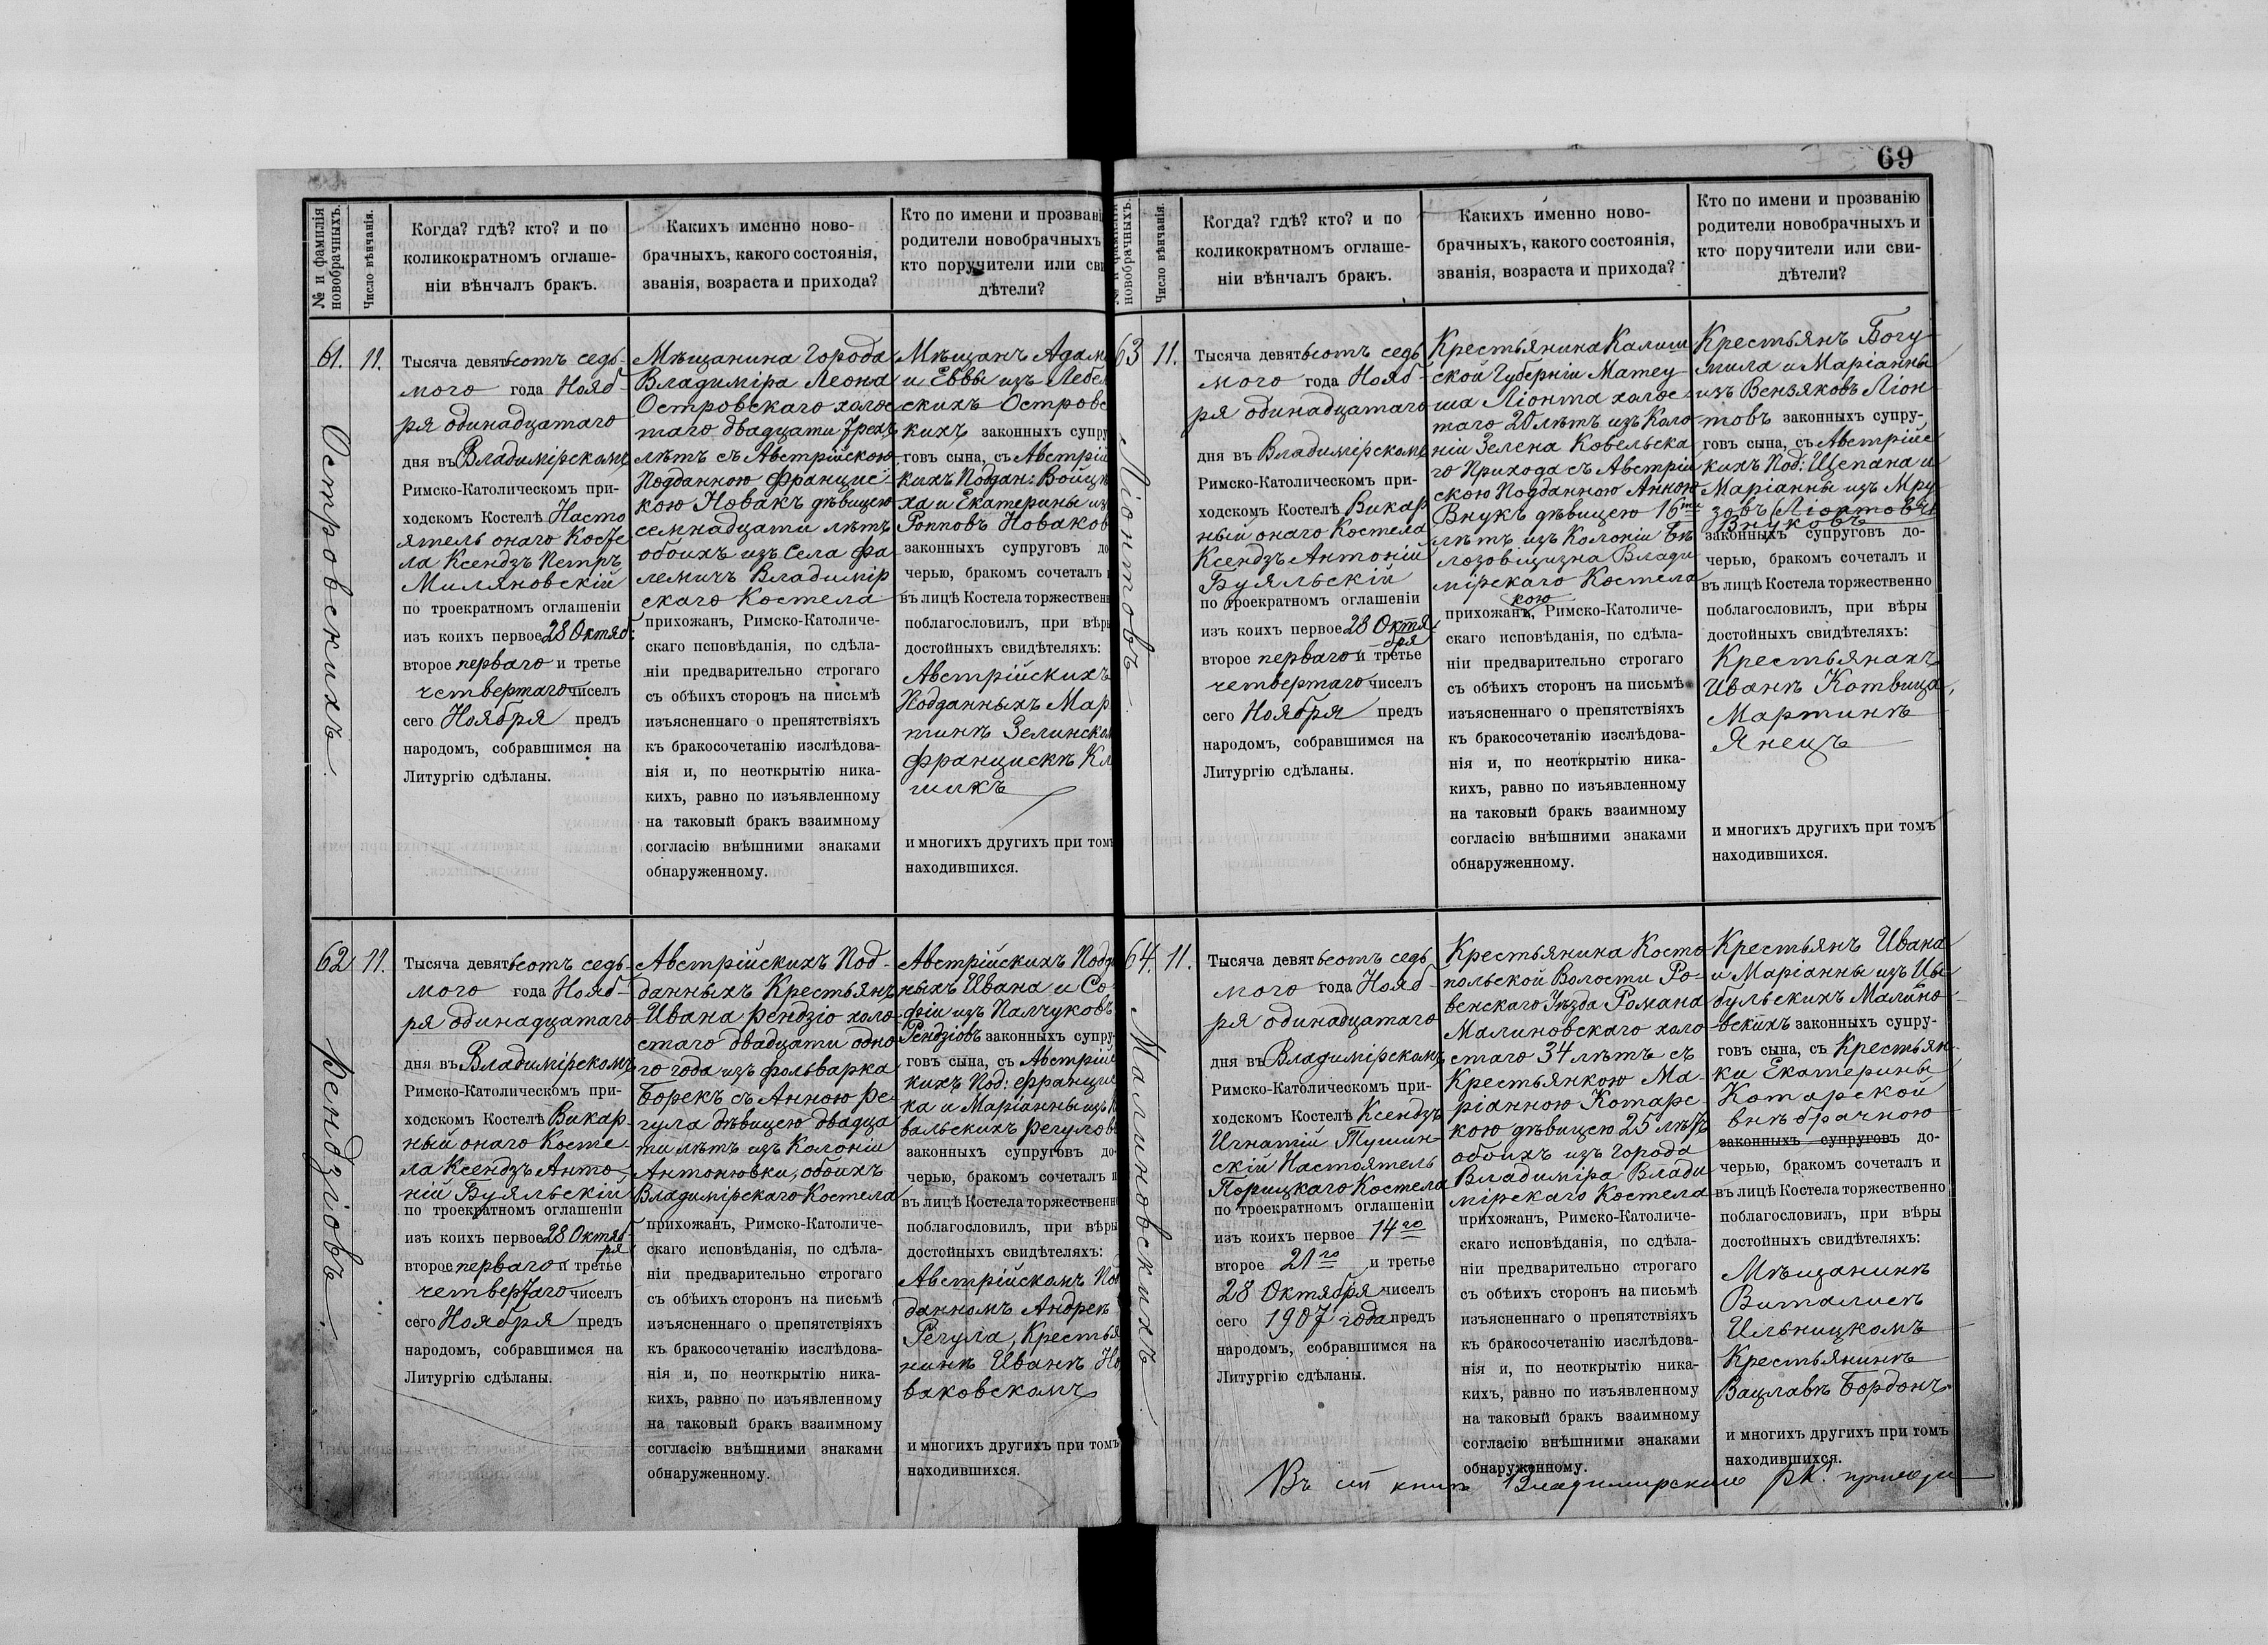 69
№ и фамилія
новобрачныхъ.
Число вѣнчанія.
Когда? гдѣ? кто? и по
коликократномъ оглаше-
ніи вѣнчалъ бракъ.
Какихъ именно ново-
брачныхъ, какого состоянія,
званія, возраста и прихода?
Кто по имени и прозвані
родители новобрачныхъ
кто поручители или сви
дѣтели?
61.
Островскихъ.
11.
Тысяча девятьсотъ седь-
мого года Нояб-
ря одинадцатаго
дня въ Владимірскомъ
Римско-Католическомъ при-
ходскомъ Костелѣ Насто
ятель онаго Косте
ла Ксендзъ Петръ
Миляновскій
по троекратномъ оглашеніи
изъ коихъ первое 28 Октяб:
второе перваго и третье
четвертаго чиселъ
сего Ноября предъ
народомъ, собравшимся на
Литургію сдѣланы.
Мѣщанина Города
Владиміра Леона
Островскаго холос
таго двадцати трехъ
лѣтъ съ Австрійскою
Подданною Францис-
кою Новакъ дѣвицею
семнадцати лѣтъ
обоихъ изъ Села Фа
лемичъ Владимір
скаго Костела
прихожанъ, Римско-Католиче-
скаго исповѣданія, по сдѣла-
ніи предварительно строгаго
съ обѣихъ сторонъ на письмѣ
изъясненнаго о препятствіяхъ
къ бракосочетанію изслѣдова-
нія и, по неоткрытію ника-
кихъ, равно по изъявленному
на таковый бракъ взаимному
согласію внѣшними знаками
обнаруженному.
Мѣщанъ Адам
и Еввы изъ Лебед
скихъ Островс
кихъ законныхъ супру
говъ сына, съ Австрій
кихъ Поддан: Войцѣ
ха и Екатерины из
Ропповъ Новаков
законныхъ супруговъ до
черью, бракомъ сочеталъ и
въ лицѣ Костела торжественн
поблагословилъ, при вѣры
достойныхъ свидѣтеляхъ:
Австрійскихъ
Подданныхъ Мар
тинѣ Зелинском
Францискѣ Кл
шихъ
и многихъ другихъ при томъ
находившихся.
62
Рендзіовъ.
11.
Тысяча девятьсотъ седь-
мого года Нояб-
ря одинадцатаго
дня въ Владимірскомъ
Римско-Католическомъ при-
ходскомъ Костелѣ Викар
ный онаго Косте-
ла Ксендзъ Анто-
ній Буяльскій
по троекратномъ оглашеніи
изъ коихъ первое 28 Октяб
ря
второе перваго и третье
четвертаго чиселъ
сего Ноября предъ
народомъ, собравшимся на
Литургію сдѣланы.
Австрійскихъ Под-
данныхъ Крестьянъ
Ивана Рендзіо холо-
стаго двадцати одно
го года изъ фольварка
Борекъ съ Анною Ре-
гула дѣвицею двадца
ти лѣтъ изъ Колоніи
Антоновки, обоихъ
Владимірскаго Костела
прихожанъ, Римско-Католиче-
скаго исповѣданія, по сдѣла-
ніи предварительно строгаго
съ обѣихъ сторонъ на письмѣ
изъясненнаго о препятствіяхъ
къ бракосочетанію изслѣдова-
нія и, по неоткрытію ника-
кихъ, равно по изъявленному
на таковый бракъ взаимному
согласію внѣшними знаками
обнаруженному.
Австрійскихъ Подда
ныхъ Ивана и Со
фіи изъ Палчуковъ
Рендзіовъ законныхъ супру-
говъ сына, съ Австрійс
кихъ Под: Францис
ка и Маріанны изъ
вальскихъ Регулов
законныхъ супруговъ до-
черью, бракомъ сочеталъ и
въ лицѣ Костела торжественно
поблагословилъ, при вѣры
достойныхъ свидѣтеляхъ:
Австрійскомъ Под
данномъ Андреѣ
Регула, Крестья
нинѣ Иванѣ Но
ваковскомъ
и многихъ другихъ при томъ
находившихся.
№ и фамилія
новобрачныхъ.
Число вѣнчанія.
Когда? гдѣ? кто? и по
коликократномъ оглаше-
ніи вѣнчалъ бракъ.
Какихъ именно ново-
брачныхъ, какого состоянія,
званія, возраста и прихода?
Кто по имени и прозванію
родители новобрачныхъ и
кто поручители или сви-
дѣтели?
63
Ліонтовъ.
11.
Тысяча девятьсотъ седь
мого года Нояб-
ря одинадцатаго
дня въ Владимірскомъ
Римско-Католическомъ при-
ходскомъ Костелѣ Викар
ный онаго Костела
Ксендзъ Антоній
Буяльскій
по троекратномъ оглашеніи
изъ коихъ первое 28 Октя
бря
второе перваго и третье
четвертаго чиселъ
сего Ноября предъ
народомъ, собравшимся на
Литургію сдѣланы.
Крестьянина Калиш
ской Губерніи Матеу-
ша Ліонта холос
таго 20 лѣтъ изъ Коло
ніи Зелена Ковельска
го Прихода съ Австрій
скою Подданною Анною
Внукъ дѣвицею 16ти
лѣтъ изъ Колоніи Бѣ
лозовщизна Влади
мірскаго Костела
кою
прихожанъ, Римско-Католиче-
скаго исповѣданія, по сдѣла-
ніи предварительно строгаго
съ обѣихъ сторонъ на письмѣ
изъясненнаго о препятствіяхъ
къ бракосочетанію изслѣдова-
нія и, по неоткрытію ника-
кихъ, равно по изъявленному
на таковый бракъ взаимному
согласію внѣшними знаками
обнаруженному.
Крестьянъ Богу
мила и Маріанны
изъ Вензяковъ Ліон
товъ законныхъ супру-
говъ сына, съ Австрійс
кихъ Под: Щепана и
Маріанны изъ Мру
зовъ Ліонтовъ
Внуковъ
законныхъ супруговъ до-
черью, бракомъ сочеталъ и
въ лицѣ Костела торжественно
поблагословилъ, при вѣры
достойныхъ свидѣтеляхъ:
Крестьянахъ
Иванѣ Котвица,
Мартинѣ
Янецъ
и многихъ другихъ при томъ
находившихся.
64.
Малиновскихъ.
11.
Тысяча девятьсотъ седь
мого года Нояб-
ря одинадцатаго
дня въ Владимірскомъ
Римско-Католическомъ при-
ходскомъ Костелѣ Ксендзъ
Игнатій Тушин-
скій Настоятель
Порицкаго Костела
по троекратномъ оглашеніи
изъ коихъ первое 14го
второе 21го и третье
28 Октября чиселъ
сего 1907 года предъ
народомъ, собравшимся на
Литургію сдѣланы.
Крестьянина Косто
польской Волости Ро-
венскаго Уѣзда Романа
Малиновскаго холо
стаго 34 лѣтъ съ
Крестьянкою Ма-
ріанною Котарс-
кою дѣвицею 25 лѣтъ
обоихъ изъ Города
Владиміра Влади
мірскаго Костела
прихожанъ, Римско-Католиче-
скаго исповѣданія, по сдѣла-
ніи предварительно строгаго
съ обѣихъ сторонъ на письмѣ
изъясненнаго о препятствіяхъ
къ бракосочетанію изслѣдова-
нія и, по неоткрытію ника-
кихъ, равно по изъявленному
на таковый бракъ взаимному
согласію внѣшними знаками
обнаруженному.
Крестьянъ Ивана
и Маріанны изъ Цы
бульскихъ Малино-
вскихъ законныхъ супру-
говъ сына, съ Крестьян-
ки Екатерины
Котарской
внѣ брачною
законныхъ супруговъ до-
черью, бракомъ сочеталъ и
въ лицѣ Костела торжественно
поблагословилъ, при вѣры
достойныхъ свидѣтеляхъ:
Мѣщанинѣ
Виталисѣ
Ильницкомъ
Крестьянинѣ
Вацлавѣ Бордонъ
и многихъ другихъ при томъ
находившихся.
Въ сей книгѣ Владимирского РК. приход